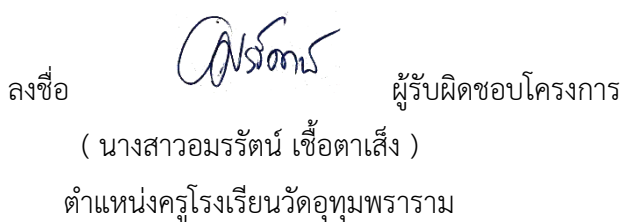 ลงชื่อ อมรรัตน์ ผู้รับผิดชอบโครงการ
( นางสาวอมรรัตน์ เชื้อตาเส็ง )
ตำแหน่งครูโรงเรียนวัดอุทุมพราราม